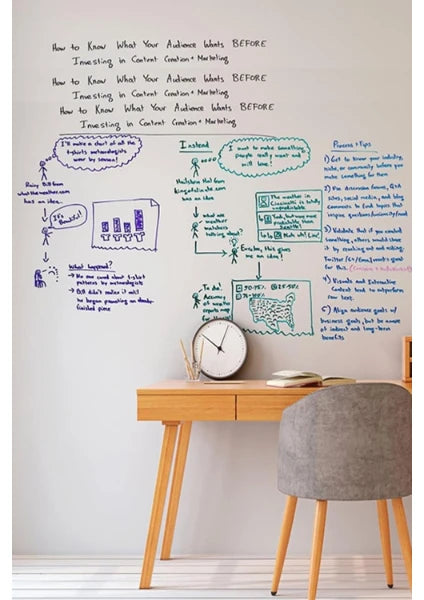 How to Know What Your Audience Wants BEFORE
Investing in Content Creation + Marketing
How to Know What Your Audience Wants BEFORE
Investing in Content Creation + Marketing
How to Know What Your Audience Wants BEFORE
Investing in Content Creation + Marketing
I'll make a chart of all
the t-shirts meteorologists
wear by season!
Rainy Bill from
whattheweather.com
has an idea..
It's
Beautiful!
What happened?
→ No one cared about t-shirt
patterns by meteorologists
→ Bill didn't realize it until
he began promoting
finished piece
Instead
I want to make something
people really want and
will love!
has an idea
what are
weather
watchers
talking about?
The weather in
Cincinnati is totally
unpredictable
Yeah, but way more
predictable than
Seattle!
Nuh uh!
Eureka, this gives
me an idea!
To da!
Accuracy
of weather
reports map
Process + Tips
1) Get to know your industry,
niche, or community before you
make something for them
2) Use discussion forums, Q+A
sites, social media, and blog
comments to find topics that
inspire questions/curiosity/need
3) Validate that if you create
something, others would share
it by reaching out and asking.
Twitter /G+/Email/events great
for this.
4) Visuals and Interactive
Content tend to outperform
raw text.
5) Align audience goals w/
business goals, but be aware
of indirect and long-term
benefits